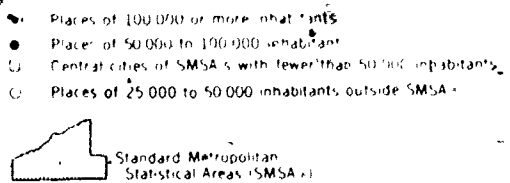 Places of 100,000 or more inhabitants
Places of 50,000 to 100,000 inhabitants
Central cities of SMSA's with fewer than 50,000 inhabitants
Places of 25,000 to 50,000 inhabitants outside SMSA's
Standard Metropolitan
Statistical Areas (SMSA's)